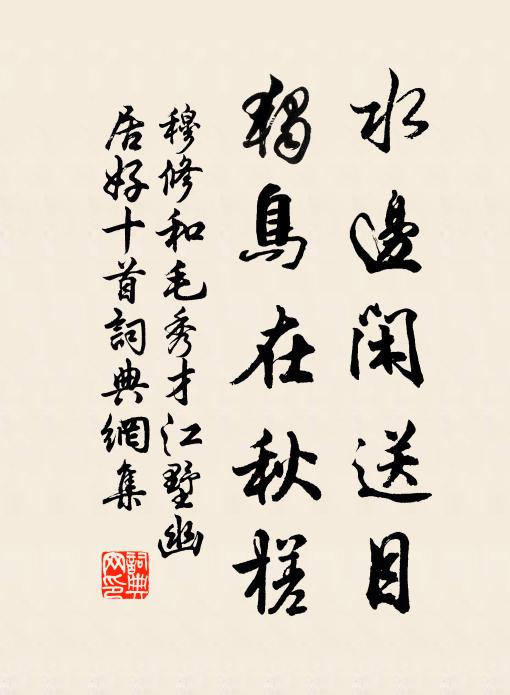 水邊閑送目
獨鳥在秋槎
穆修和毛秀才江墅幽
居好十首詞典網集
詞典
网印